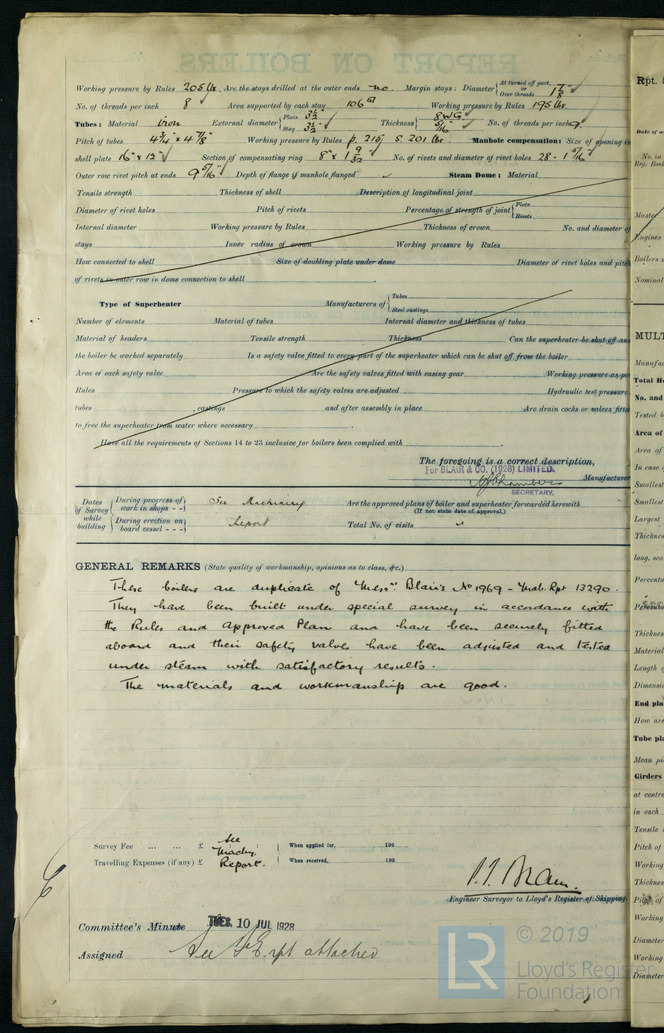 REPORT ON BOILERS.
Working pressure by Rules 205 lbs Are the stays drilled at the outer ends no. Margin stays: Diameter { At turned off part, or Over threads
No. of threads per inch 8 ✓ Area supported by each stay 106 Working pressure by Rules 195 lbs.
Tubes: Material Iron External diameter { Plain 3½ Stay 3½ ✓ Thickness { 8 WG 5/16 ✓ No. of threads per inch 9
Pitch of tubes 4¾ x 4⅞ Working pressure by Rules p. 215 S. 201 lbs Manhole compensation: Size of opening in
shell plate 16" x 12" ✓ Section of compensating ring 8" x 1 9/32 No. of rivets and diameter of rivet holes 28 - 1 5/16 ✓
Outer row rivet pitch at ends 9 5/16 ✓ Depth of flange if manhole flanged ✓ Steam Dome: Material
Tensile strength Thickness of shell Description of longitudinal joint
Diameter of rivet holes Pitch of rivets Percentage of strength of joint { Plate Rivets
Internal diameter Working pressure by Rules Thickness of crown No. and diameter of
stays Inner radius of crown Working pressure by Rules
How connected to shell Size of doubling plate under dome Diameter of rivet holes and pitch
of rivets in outer row in dome connection to shell
Type of Superheater Manufacturers of { Tubes Steel castings
Number of elements Material of tubes Internal diameter and thickness of tubes
Material of headers Tensile strength Thickness Can the superheater be shut off and
the boiler be worked separately Is a safety valve fitted to every part of the superheater which can be shut off from the boiler
Area of each safety valve Are the safety valves fitted with easing gear Working pressure as per
Rules Pressure to which the safety valves are adjusted Hydraulic test pressure
tubes castings and after assembly in place Are drain cocks or valves fitted
to free the superheater from water where necessary
Have all the requirements of Sections 14 to 23 inclusive for boilers been complied with
The foregoing is a correct description,
For BLAIR & CO. (1926) LIMITED.
Manufacturer
SECRETARY.
Dates of Survey while building { During progress of work in shops - - } See Machinery Are the approved plans of boiler and superheater forwarded herewith
(If not state date of approval.)
{ During erection on board vessel - - - } Report Total No. of visits
GENERAL REMARKS (State quality of workmanship, opinions as to class, &c.)
These boilers are duplicate of Messrs Blair's No 1969 - Mab. Rpt 13290.
They have been built under special survey in accordance with
the Rules and Approved Plan and have been securely fitted
aboard and their safety valves have been adjusted and tested
under steam with satisfactory results.
The materials and workmanship are good.
Survey Fee ... ... £ See When applied for, 192
Machy.
Travelling Expenses (if any) £ Report. When received, 192
Engineer Surveyor to Lloyd's Register of Shipping.
Committee's Minute TUES. 10 JUL 1928
Assigned See F.E. rpt attached
© 2019
LR Lloyd's Register
Foundation
Rpt.
Date of w
No. in
Reg. Book
Master
Engines
Boilers
Nominal
MULT
Manufac
Total He
No. and
Tested b
Area of
Area of
In case o
Smallest
Smallest
Largest
Thickness
long. sea
Percenta
Thickness
Material
Length o
Dimensio
End pla
How are
Tube pla
Mean pi
Girders
at centre
in each
Tensile
Pitch of
Working
Thickness
Pitch of
Working
Diameter
Working
Diameter